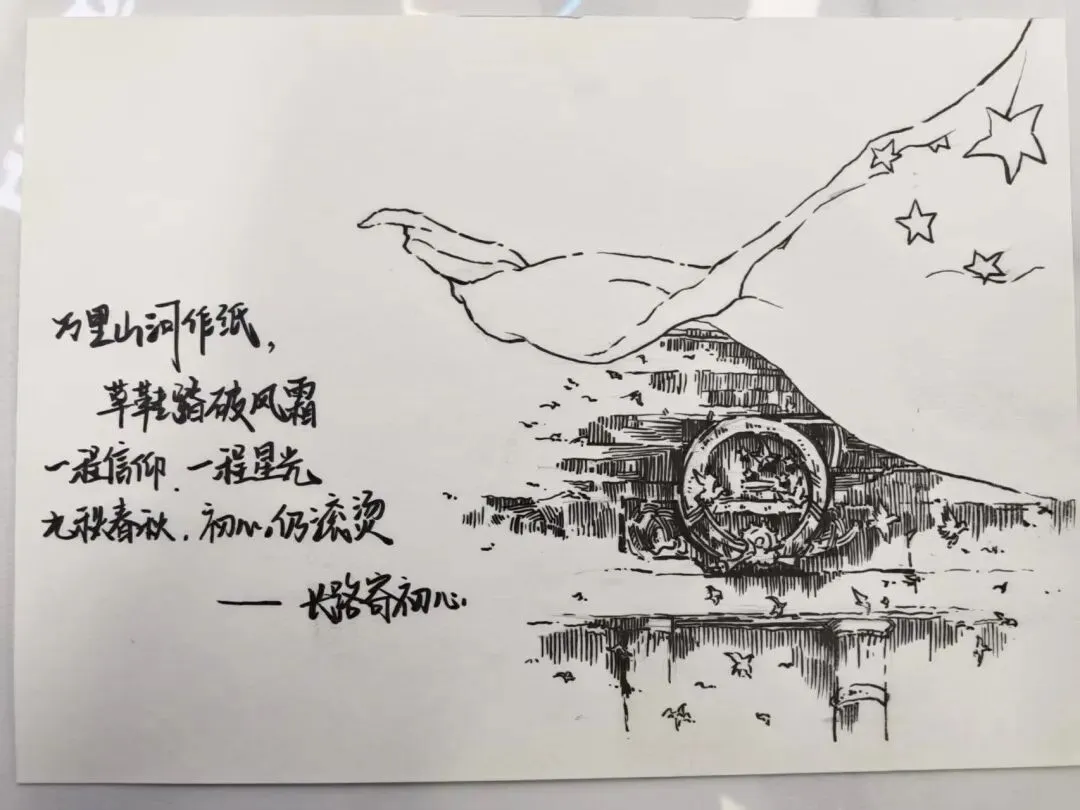 万里山河作纸，
草鞋踏破风霜
一程信仰.一程星光
九秩春秋.初心仍滚烫
——长路寄初心